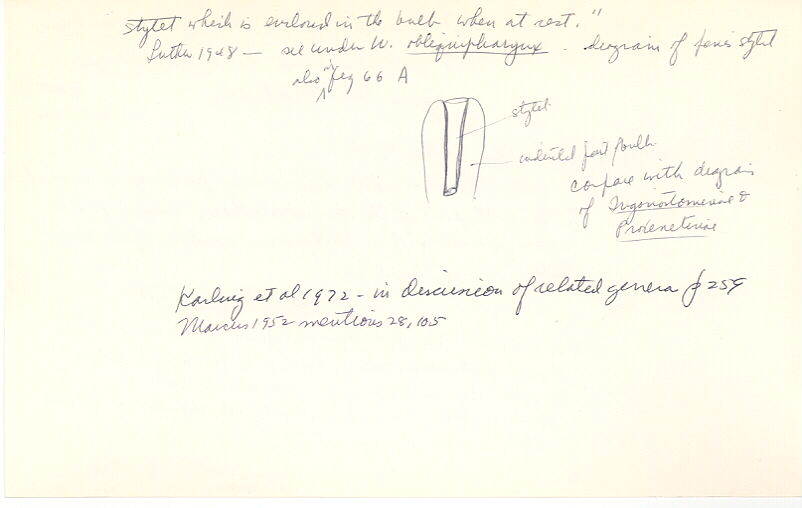 stylet which is enclosed in the bulb when at rest."
Luther 1948 — see under W. obliquipharynx. diagram of penis stylet
also in fig 66 A
stylet
indented part of bulb
compare with diagram
of Trigonostominae &
Proxenetinae
Karling et al 1972 - in discussion of related genera p 259
Marcus 1952 mentions 28, 105